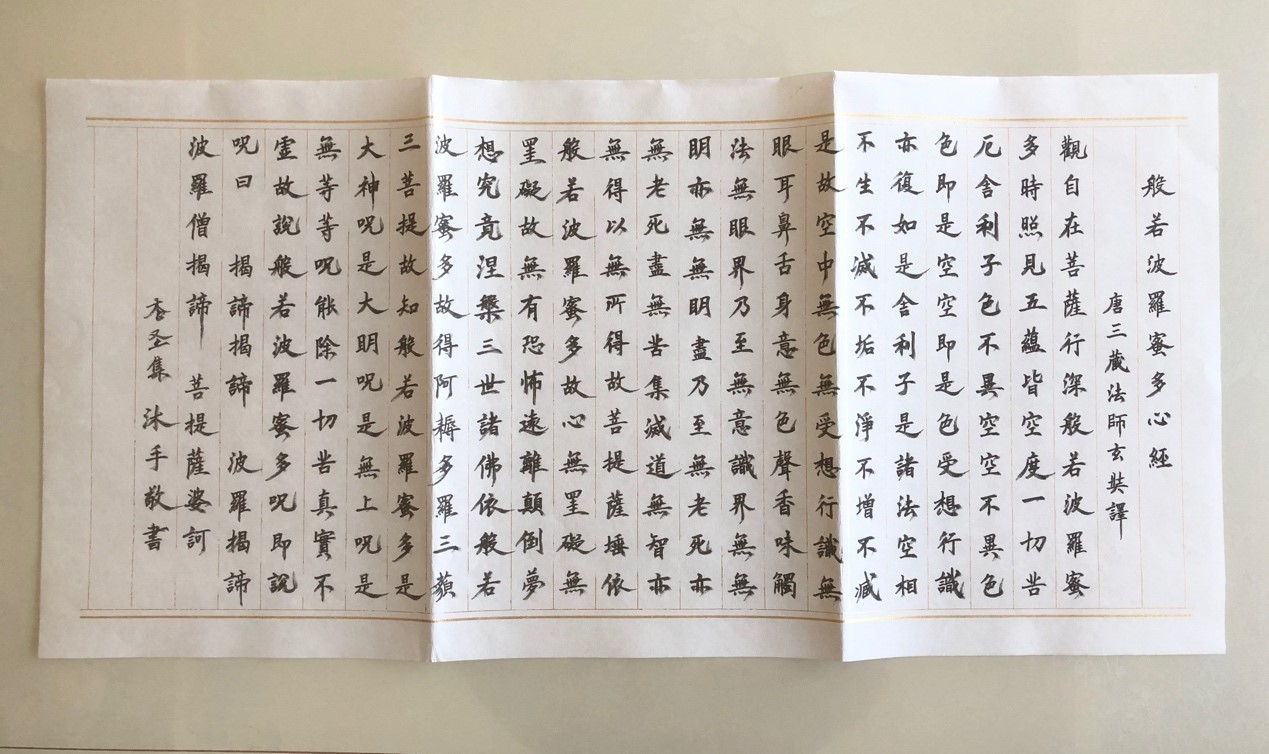 般若波羅蜜多心經
唐三藏法師玄奘譯
觀自在菩薩行深般若波羅蜜
多時照見五蘊皆空度一切苦
厄舍利子色不異空空不異色
色即是空空即是色受想行識
亦復如是舍利子是諸法空相
不生不滅不垢不淨不增不減
是故空中無色無受想行識無
眼耳鼻舌身意無色聲香味觸
法無眼界乃至無意識界無無
明亦無無明盡乃至無老死亦
無老死盡無苦集滅道無智亦
無得以無所得故菩提薩埵依
般若波羅蜜多故心無罣礙無
罣礙故無有恐怖遠離顛倒夢
想究竟涅槃三世諸佛依般若
波羅蜜多故得阿耨多羅三藐
三菩提故知般若波羅蜜多是
大神呪是大明呪是無上呪是
無等等呪能除一切苦真實不
虛故說般若波羅蜜多呪即說
呪曰 揭諦揭諦 波羅揭諦
波羅僧揭諦 菩提薩婆訶
沐手敬書